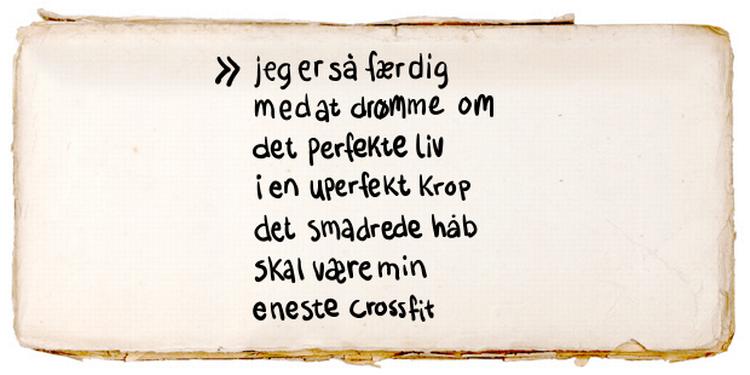 » jeg er så færdig
med at drømme om
det perfekte liv
i en uperfekt krop
det smadrede håb
skal være min
eneste crossfit